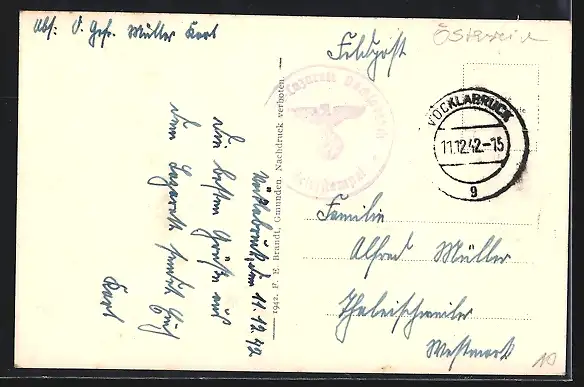 Abs: O. Gefr. Müller Karl
Feldpost
Österreich
VÖCKLABRUCK
11.12.42.-15
g
Vöcklabruck, den 11.12.42
Die besten Grüße aus
dem Lazarett sendet Euch
Karl
1942. F. E. Brandt, Gmunden. Nachdruck verboten.
Familie
Alfred Müller
Thaleischweiler
Westmark
10